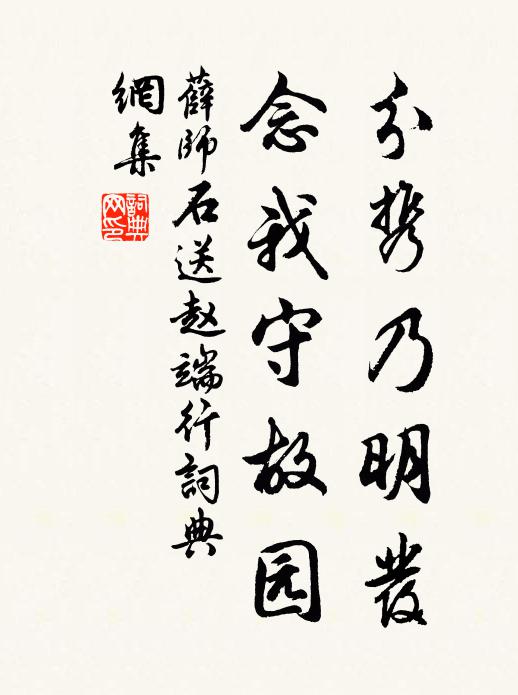 分携乃明發
念我守故园
薛師石送赵端行詞典
網集
詞典
网印